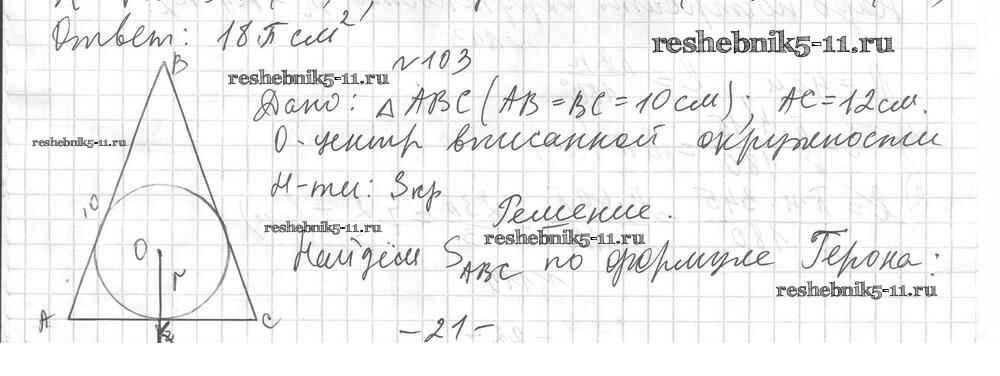 Ответ: 18π см²
reshebnik5-11.ru
N103
reshebnik5-11.ru
B
Дано: △ ABC (AB = BC = 10 см); AC = 12 см.
reshebnik5-11.ru
O - центр вписанной окружности
Н-ти: Sкр
10
Решение.
reshebnik5-11.ru
reshebnik5-11.ru
O
Найдём S ABC по формуле Герона:
r
reshebnik5-11.ru
A
C
-21-